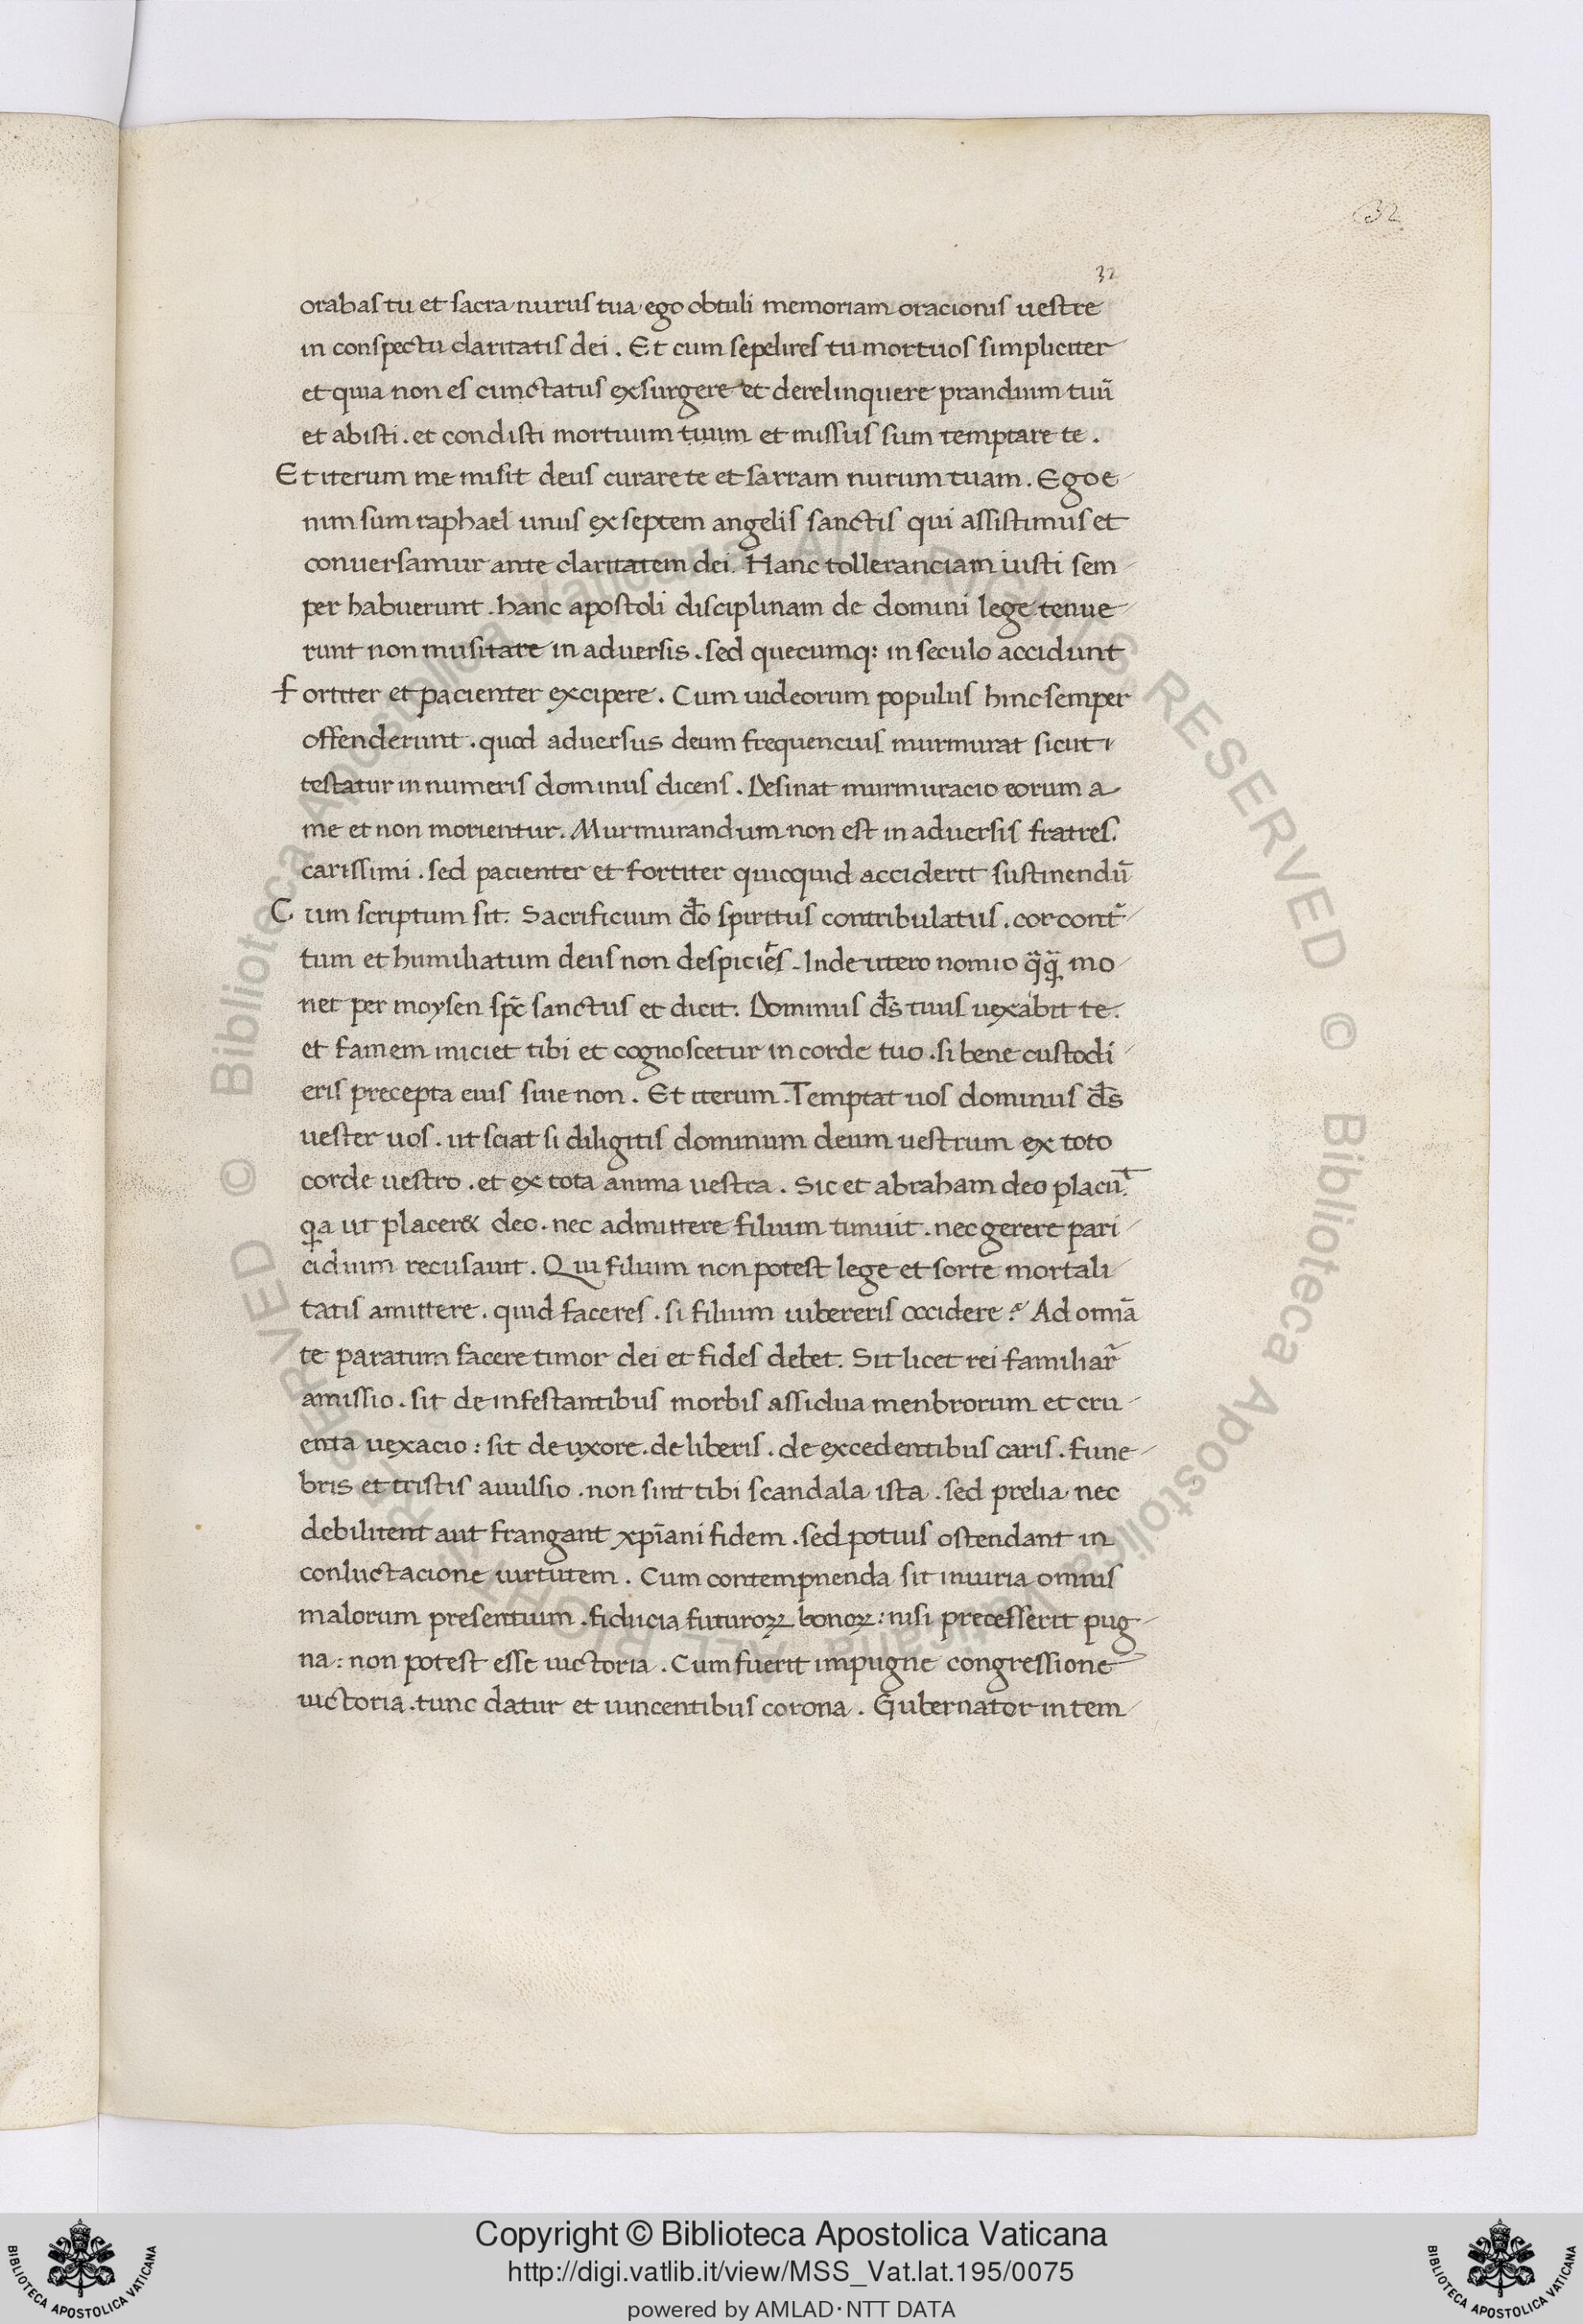 32
32
orabas tu et sacra nurus tua ego obtuli memoriam oracionis uestre
in conspectu claritatis dei . Et cum sepelires tu mortuos simpliciter
et quia non es cunctatus exsurgere et derelinquere prandium tuū
et abisti . et condisti mortuum tuum et missus sum temptare te .
Et iterum me misit deus curare te et sarram nurum tuam . Ego e
nim sum raphael unus ex septem angelis sanctis qui assistimus et
conuersamur ante claritatem dei . Hanc tolleranciam iusti sem
per habuerunt . hanc apostoli disciplinam de domini lege tenue
runt non musitare in aduersis . sed quecumq: in seculo accidunt
Fortiter et pacienter excipere . Cum iudeorum populus hinc semper
offenderunt . quod aduersus deum frequencius murmurat sicut
testatur in numeris dominus dicens . Desinat murmuracio eorum a
me et non morientur . Murmurandum non est in aduersis fratres .
carissimi . sed pacienter et fortiter quicquid acciderit sustinendū
Cum scriptum sit . Sacrificium do̅ spiritus contribulatus . cor cont̅
tum et humiliatum deus non despicies . In deutero nomio q̄q̄ mo
net per moysen sp̅c sanctus et dicit . Dominus d̅s tuus uexabit te .
et famem iniciet tibi et cognoscetur in corde tuo . si bene custodi
eris precepta eius siue non . Et iterum . Temptat uos dominus d̅s
uester uos . ut sciat si diligitis dominum deum uestrum ex toto
corde uestro . et ex tota anima uestra . Sic et abraham deo placuᵗ .
qa ut placer& deo . nec admittere filium timuit . nec gerere pari
cidium recusauit . Qui filium non potest lege et sorte mortali
tatis amittere . quid faceres . si filium iubereris occidere ? Ad omīa
te paratum facere timor dei et fides debet . Sit licet rei familiar̄
amissio . sit de infestantibus morbis assidua menbrorum et cru
enta uexacio : sit de uxore . de liberis . de excedentibus caris . fune
bris et tristis auulsio . non sint tibi scandala ista . sed prelia nec
debilitent aut frangant xp̅iani fidem . sed potius ostendant in
conluctacione uirtutem . Cum contempnenda sit iniuria omnis
malorum presentium . fiducia futuroꝝ bonoꝝ : nisi precesserit pug
na : non potest esse uictoria . Cum fuerit impugne congressione
uictoria . tunc datur et uincentibus corona . Gubernator in tem
© Biblioteca Apostolica Vaticana ALL RIGHTS RESERVED © Biblioteca Apostolica Vaticana ALL RIGHTS RESERVED
Copyright © Biblioteca Apostolica Vaticana
http://digi.vatlib.it/view/MSS_Vat.lat.195/0075
powered by AMLAD·NTT DATA
BIBLIOTECA APOSTOLICA VATICANA
BIBLIOTECA APOSTOLICA VATICANA